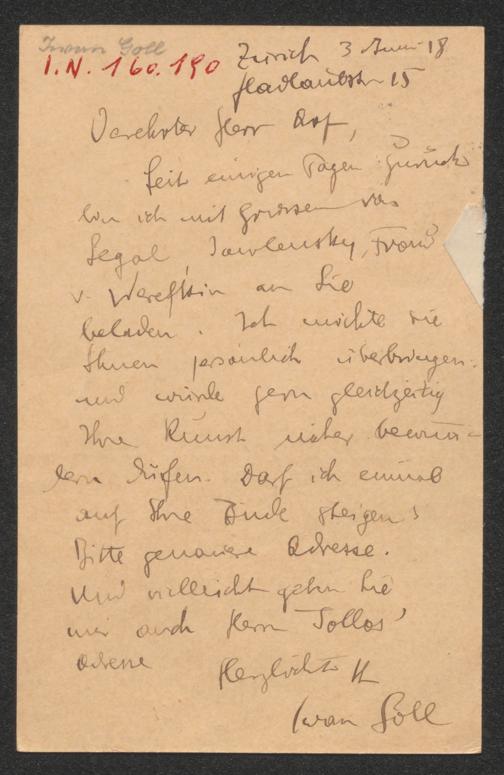 Iwan Goll
I.N. 160.190
Zürich 3 Juni 18
Hadlaubstr 15
Verehrter Herr Arp,
Seit einigen Tagen zurück
bin ich mit Grüssen von
Segal Jawlensky, Frau
v. Werefkin an Sie
beladen. Ich möchte sie
Ihnen persönlich überbringen
und würde gern gleichzeitig
Ihre Kunst näher bewun-
dern dürfen. Darf ich einmal
auf Ihre Bude steigen?
Bitte genauere Adresse.
Und vielleicht geben Sie
mir auch Herrn
Adresse
Herzlichst
Iwan Goll